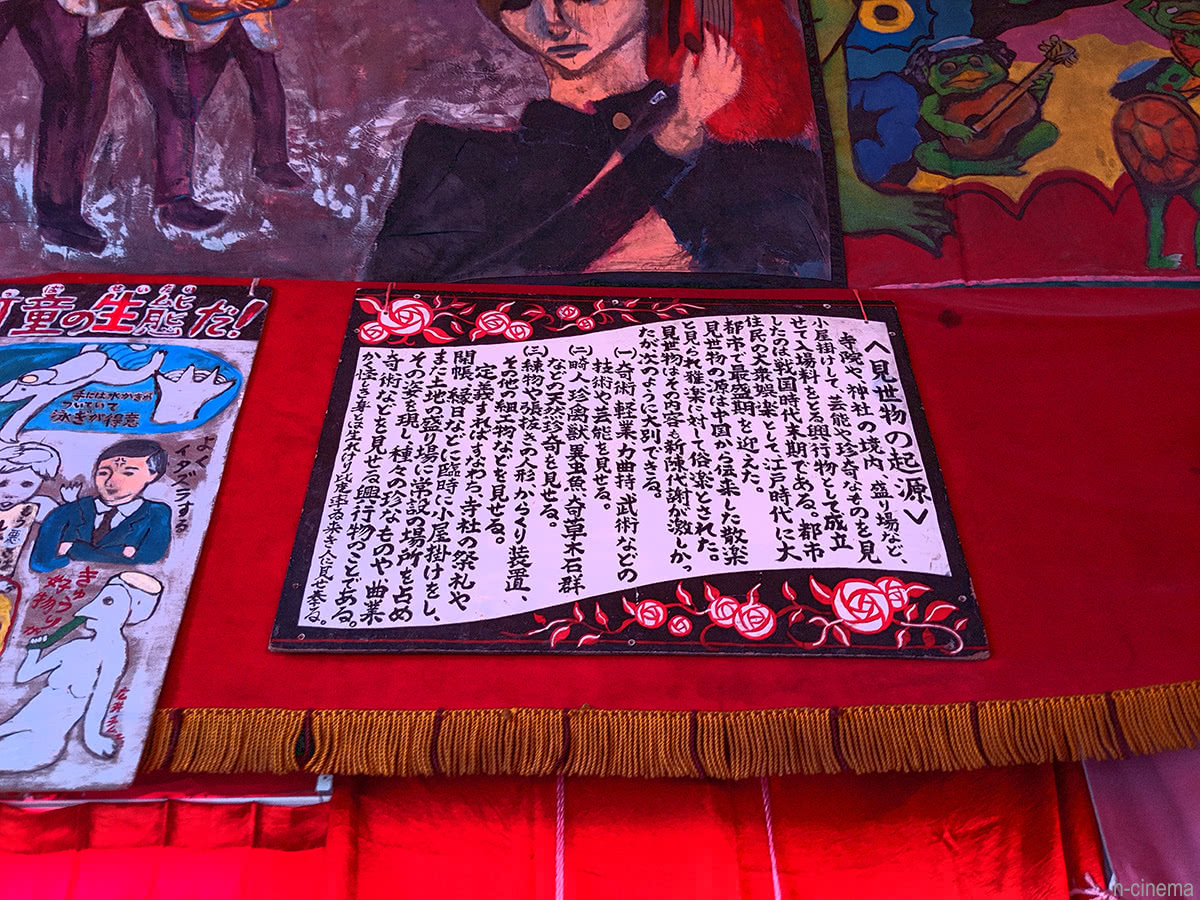 〈見世物の起源〉
寺院や、神社の境内、盛り場など、
小屋掛けして、芸能や珍奇なものを見
せて入場料をとる興行物として成立
したのは戦国時代末期である。都市
住民の大衆娯楽として、江戸時代に大
都市で最盛期を迎えた。
見世物の源は中国から伝来した散楽
と見られ雅楽に対して俗楽とされた。
見世物はその内容も新陳代謝が激しかっ
たが次のように大別できる。
(一)奇術、軽業、力曲持、武術などの
技術や芸能を見せる。
(二)畸人、珍禽獣、異虫魚、奇草木石群
などの天然珍奇を見せる。
(三)練物や張抜きの人形、からくり装置、
その他の細物などを見せる。
定義すればすなわち、寺社の祭礼や
開帳、縁日などに臨時に小屋掛けをし、
また土地の盛り場に常設の場所を占め
その姿を現し、種々の珍なものや、曲業
奇術などを見せる興行物のことである。
童の生態だ!
手には水かきが
ついていて
泳ぎが得意
よく
イタズラする
きゅうりが
好物
n-cinema